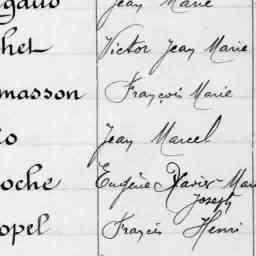 gaud Jean Marie
het Victor Jean Marie
masson François Marie
o Jean Marcel
oche Eugène Xavier Mar
Joseph
opel Francis Henri